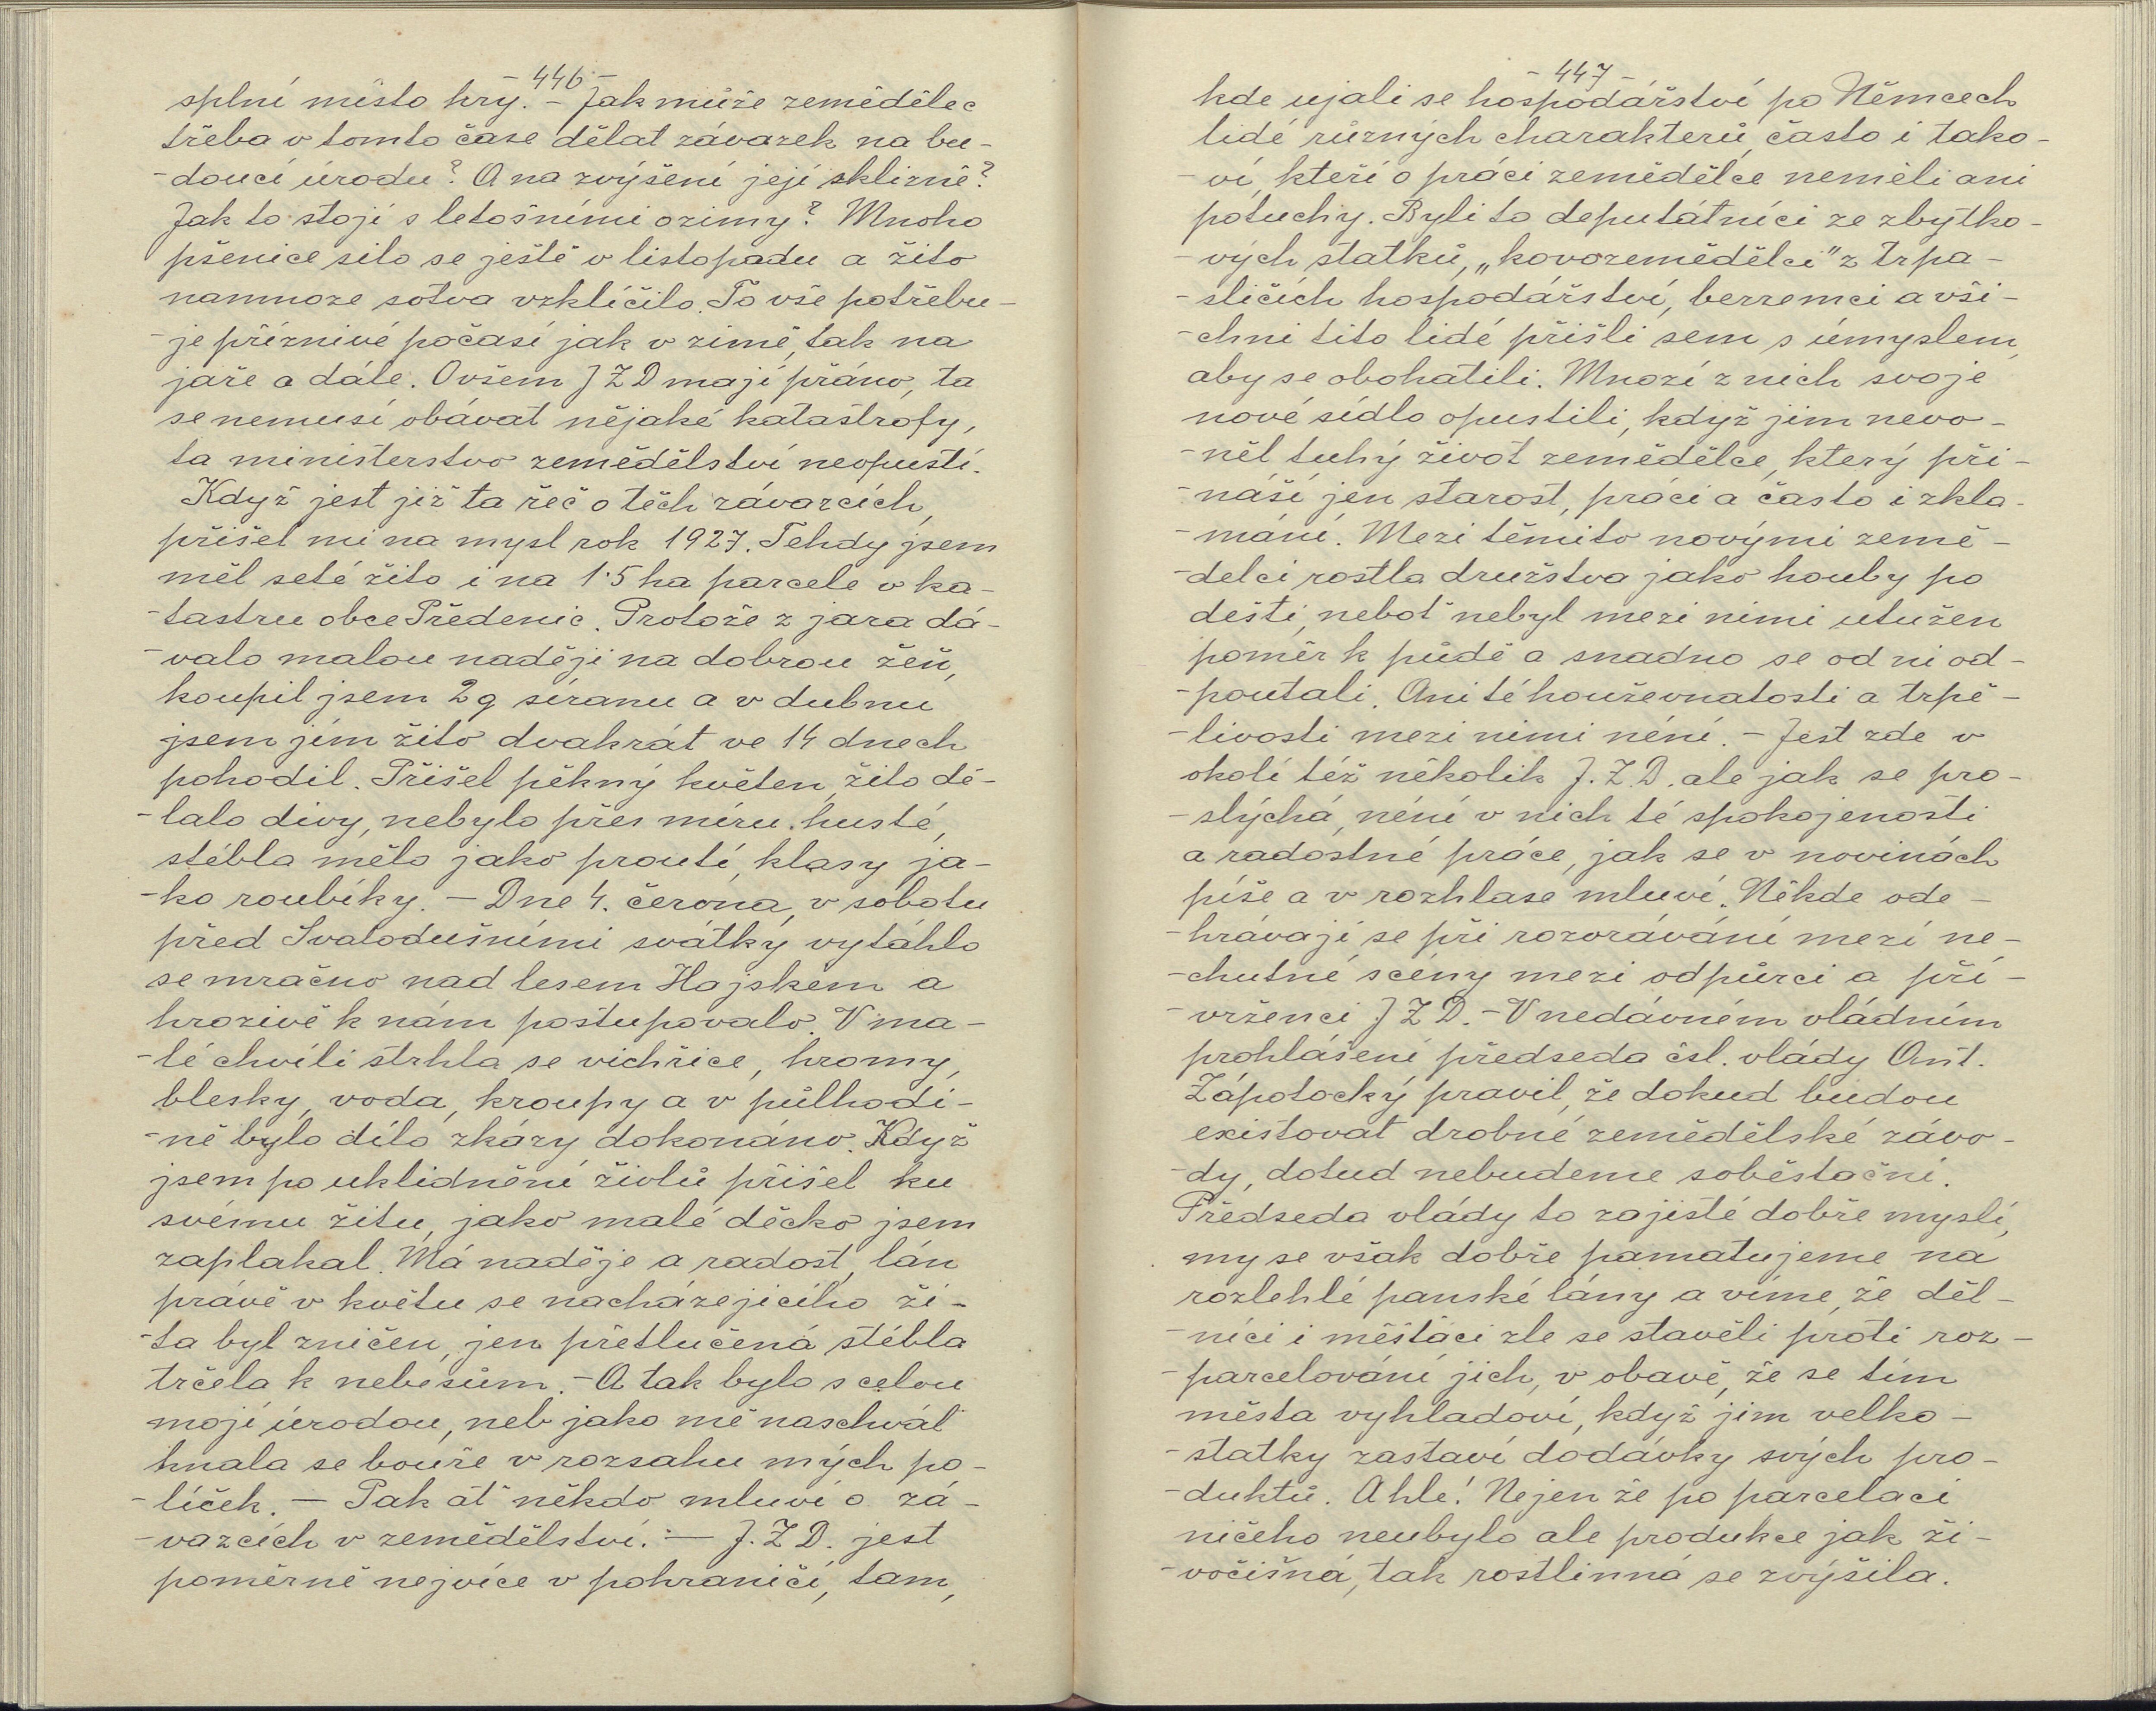 - 446 -
splní místo hry. - Jak může zemědělec
třeba v tomto čase dělat závazek na bu-
-doucí úrodu? A na zvýšení její sklizně?
Jak to stojí s letošními ozimy? Mnoho
pšenice silo se ještě v listopadu a žito
namnoze sotva vzklíčilo. To vše potřebu-
-je příznivé počasí jak v zimě, tak na
jaře a dále. Ovšem JZD mají práno, ta
se nemusí obávat nějaké katastrofy,
ta ministerstvo zemědělství neopustí.
Když jest již ta řeč o těch závazcích,
přišel mi na mysl rok 1927. Tehdy jsem
měl seté žito i na 1·5 ha parcele v ka-
-tastru obce Předenic. Protože z jara dá-
-valo malou naději na dobrou žeň,
koupil jsem 2q síranu a v dubnu
jsem jím žito dvakrát ve 14 dnech
pohodil. Přišel pěkný květen, žito dě-
-lalo divy, nebylo přes míru husté,
stébla mělo jako proutí, klasy ja-
-ko roubíky. - Dne 4. června, v sobotu
před Svatodušními svátky vytáhlo
se mračno nad lesem Hajskem a
hrozivě k nám postupovalo. V ma-
-lé chvíli strhla se vichřice, hromy,
blesky, voda, kroupy a v půlhodi-
-ně bylo dílo zkázy dokonáno. Když
jsem po uklidnění živlů přišel ku
svému žitu, jako malé děcko jsem
zaplakal. Má naděje a radost, lán
právě v květu se nacházejícího ži-
-ta byl zničen, jen přetlučená stébla
trčela k nebesům. - A tak bylo s celou
mojí úrodou, neb jako mě naschvál
hnala se bouře v rozsahu mých po-
-líček. - Pak ať někdo mluví o zá-
-vazcích v zemědělství. - J.Z D. jest
poměrně nejvíce v pohraničí, tam,
- 447 -
kde ujali se hospodářství po Němcech
lidé různých charakterů, často i tako-
-ví, kteří o práci zemědělce neměli ani
potuchy. Byli to deputátníci ze zbytko-
-vých statků, „kovozemědělci" z trpa-
-sličích hospodářství, bezzemci a vši-
-chni tito lidé přišli sem s úmyslem,
aby se obohatili. Mnozí z nich svoje
nové sídlo opustili, když jim nevo-
-něl tuhý život zemědělce, který při-
-náší jen starost, práci a často i zkla-
-mání. Mezi těmito novými země-
-delci rostla družstva jako houby po
dešti, neboť nebyl mezi nimi utužen
poměr k půdě a snadno se od ni od-
-poutali. Ani té houževnatosti a trpě-
-livosti mezi nimi není. - Jest zde v
okolí též několik J.Z.D. ale jak se pro-
-slýchá, není v nich té spokojenosti
a radostné práce, jak se v novinách
píše a v rozhlase mluví. Někde ode-
-hrávají se při rozorávání mezí ne-
-chutné scény mezi odpůrci a pří-
-vrženci JZD. - V nedávném vládním
prohlášení předseda čsl. vlády Ant.
Zápotocký pravil, že dokud budou
existovat drobné zemědělské závo-
-dy, dotud nebudeme soběstační.
Předseda vlády to zajisté dobře myslí,
my se však dobře pamatujeme na
rozlehlé panské lány a víme, že děl-
-níci i měšťáci zle se stavěli proti roz-
-parcelování jich, v obavě, že se tím
města vyhladoví, když jim velko-
-statky zastaví dodávky svých pro-
-duktů. A hle! Nejen že po parcelaci
ničeho neubylo ale produkce jak ži-
-vočišná, tak rostlinná se zvýšila.